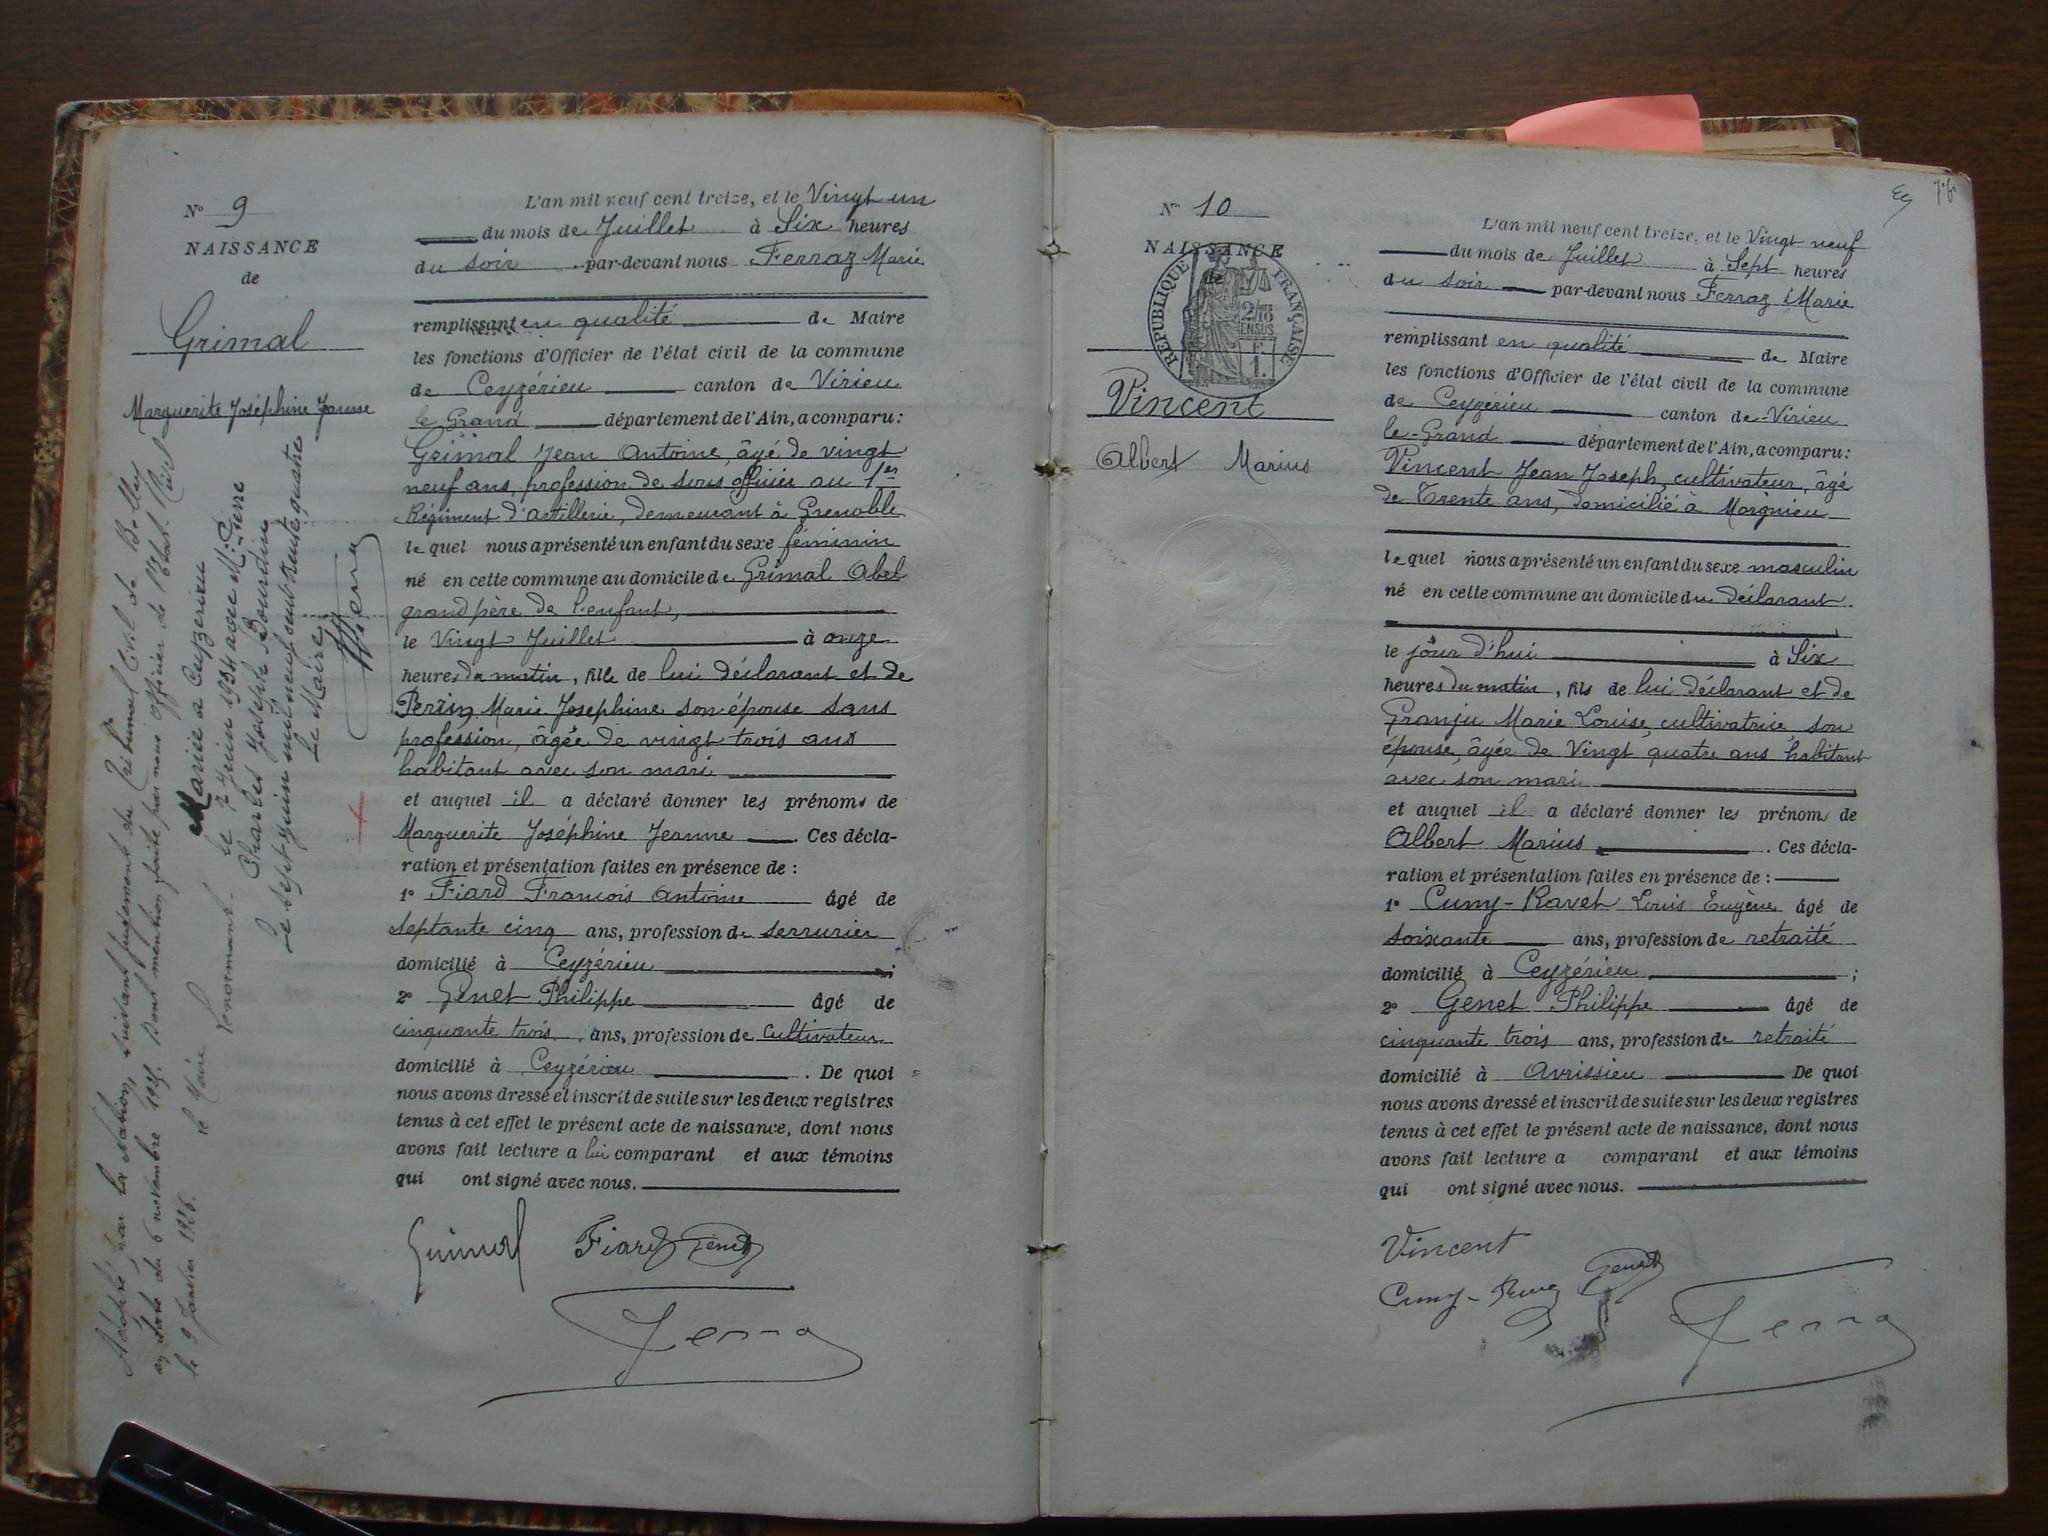 N° 9
NAISSANCE
de
Grimal
Marguerite Joséphine Jeanne
Adoptée par la Nation, suivant jugement du Tribunal Civil de Belley
en date du 6 novembre 1925. Dont mention faite par nous officier de l'état-civil
le 9 Janvier 1926. le Maire
Mariée à Ceyzérieu
le 7 Juin 1934 avec Mr Pierre
Charles Joseph Bourdin
Le sept Juin mil neuf cent trente quatre
Le Maire
L'an mil neuf cent treize, et le Vingt un
du mois de Juillet à Six heures
du soir par-devant nous Ferraz Marie
remplissant en qualité de Maire
les fonctions d'Officier de l'état civil de la commune
de Ceyzérieu canton de Virieu
le Grand département de l'Ain, a comparu :
Grimal Jean Antoine, âgé de vingt
neuf ans, profession de sous officier au 1er
Régiment d'artillerie, demeurant à Grenoble
le quel nous a présenté un enfant du sexe féminin
né en cette commune au domicile de Grimal Abel
grand père de l'enfant,
le Vingt Juillet à onze
heures du matin, fille de lui déclarant et de
Perrin Marie Josephine son épouse sans
profession, âgée de vingt trois ans
habitant avec son mari
et auquel il a déclaré donner les prénoms de
Marguerite Joséphine Jeanne . Ces décla-
ration et présentation faites en présence de :
1° Fiard François Antoine âgé de
septante cinq ans, profession de serrurier
domicilié à Ceyzérieu ;
2° Genet Philippe âgé de
cinquante trois ans, profession de Cultivateur
domicilié à Ceyzérieu . De quoi
nous avons dressé et inscrit de suite sur les deux registres
tenus à cet effet le présent acte de naissance, dont nous
avons fait lecture a lui comparant et aux témoins
qui ont signé avec nous.
Grimal Fiard Genet
Ferraz
76
N° 10
NAISSANCE
de
RÉPUBLIQUE FRANÇAISE
Vincent
Albert Marius
L'an mil neuf cent treize, et le Vingt neuf
du mois de Juillet à Sept heures
du soir par-devant nous Ferraz Marie
remplissant en qualité de Maire
les fonctions d'Officier de l'état civil de la commune
de Ceyzérieu canton de Virieu
le-Grand département de l'Ain, a comparu :
Vincent Jean Joseph, cultivateur, âgé
de Trente ans, domicilié à Morgnieu
le quel nous a présenté un enfant du sexe masculin
né en cette commune au domicile du déclarant.
le jour d'hui à Six
heures du matin, fils de lui déclarant et de
Granju Marie Louise, cultivatrice, son
épouse, âgée de Vingt quatre ans habitant
avec son mari
et auquel il a déclaré donner les prénoms de
Albert Marius . Ces décla-
ration et présentation faites en présence de :
1° Cumy-Ravet Louis Eugène âgé de
soixante ans, profession de retraité
domicilié à Ceyzérieu ;
2° Genet Philippe âgé de
cinquante trois ans, profession de retraité
domicilié à Avrissieu De quoi
nous avons dressé et inscrit de suite sur les deux registres
tenus à cet effet le présent acte de naissance, dont nous
avons fait lecture a comparant et aux témoins
qui ont signé avec nous.
Vincent
Genet
Ferraz